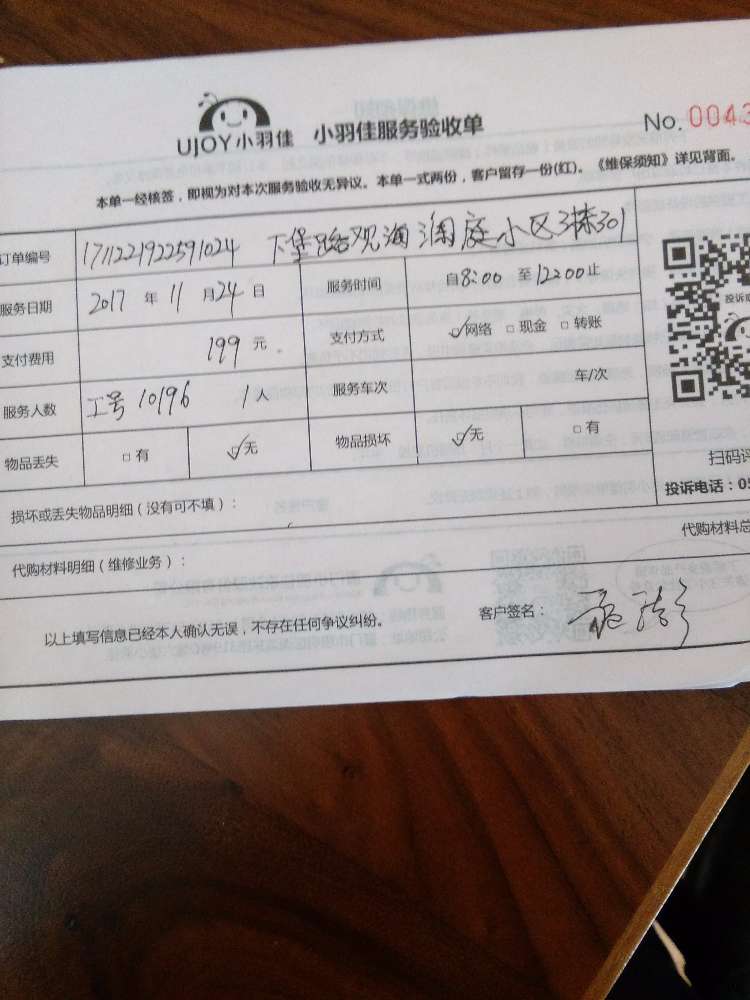 UJOY小羽佳 小羽佳服务验收单 No. 0043
本单一经核签，即视为对本次服务验收无异议。本单一式两份，客户留存一份(红)。《维保须知》详见背面。
订单编号 1711221922591024 下堡路观海澜庭小区3楼301
服务日期 2017 年 11 月 24 日 服务时间 自8:00 至12:00止
支付费用 199 元 支付方式 ☑网络 □现金 □转账
服务人数 工号 10196 1人 服务车次 车/次
物品丢失 □有 ☑无 物品损坏 ☑无 □有
投诉
扫码评
投诉电话：05
损坏或丢失物品明细（没有可不填）：
代购材料总
代购材料明细（维修业务）：
以上填写信息已经本人确认无误，不存在任何争议纠纷。 客户签名：